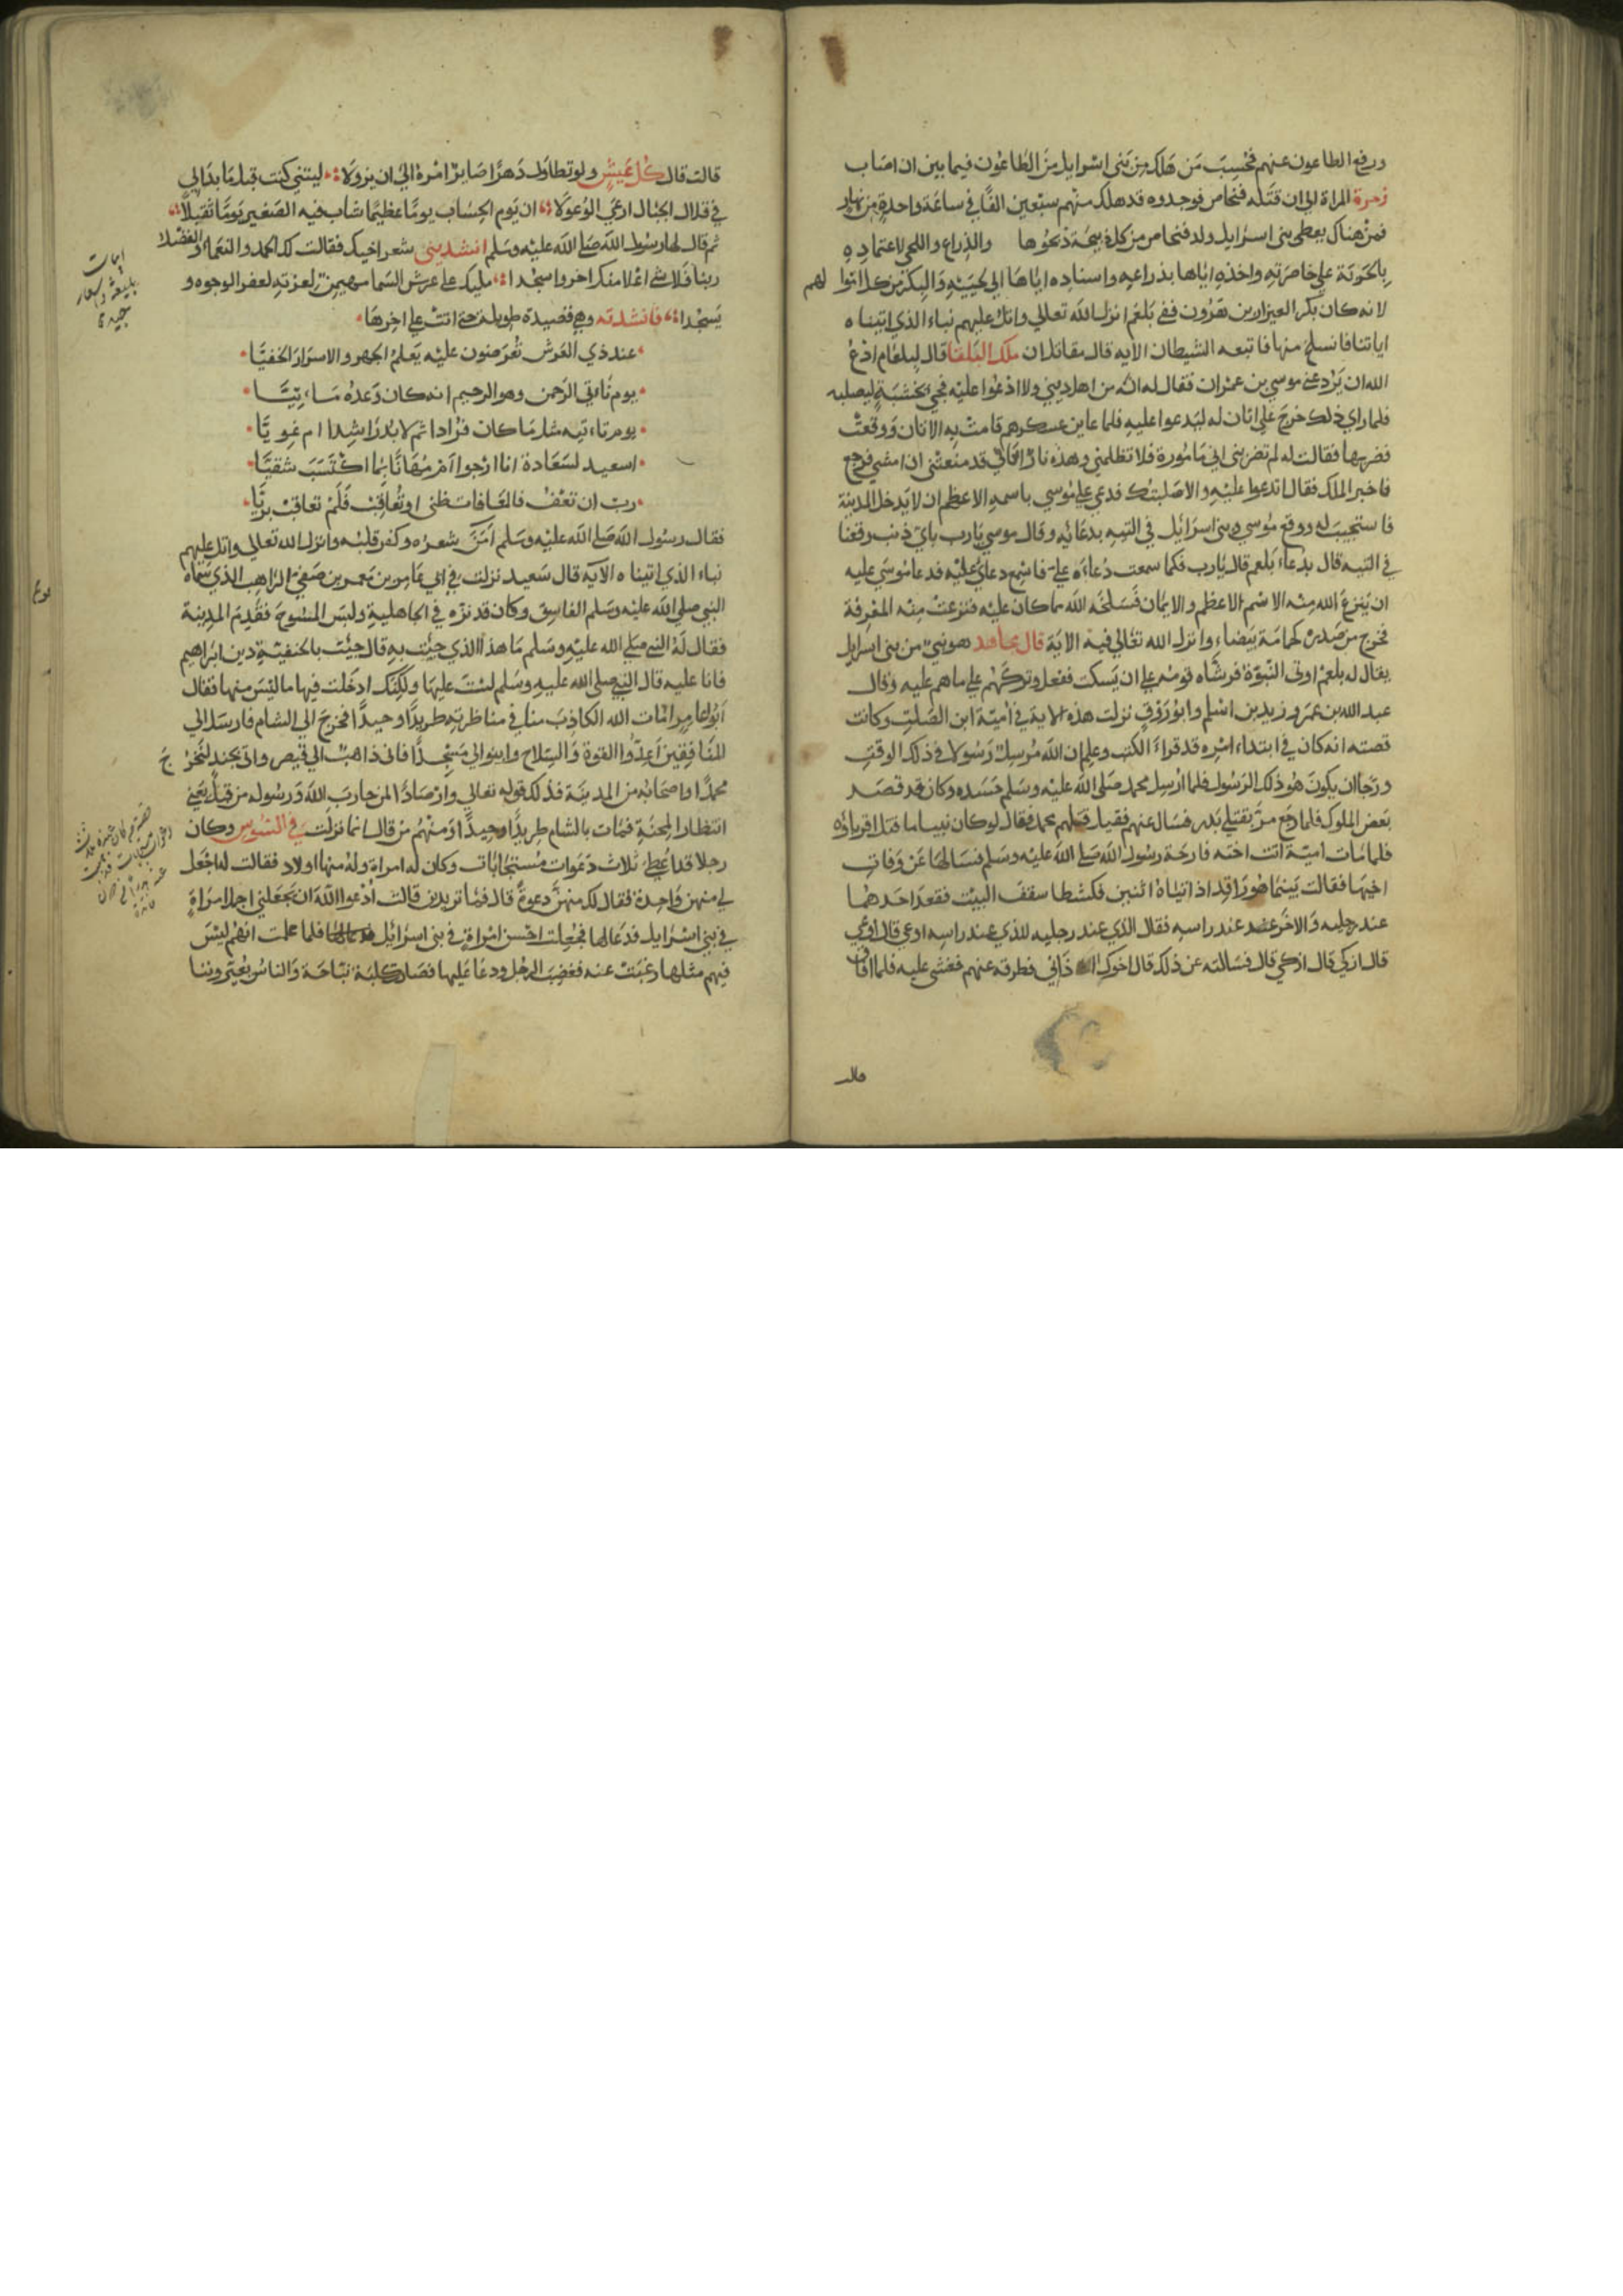 ورفع الطاعون عنهم فحسب من هلك من بني اسرايل من الطاعون فيما بين ان اصاب
زمرة المراة الى ان قتله فنحاص فوجدوه قد هلك منهم سبعين الفا في ساعة واحدة من نهار
فمن هناك يعطي بني اسرايل ولد فنحاص من كل ذبيحة ذبحوها والذراع واللحى لاعتماده
بالحربة على خاصرته واخذه اياها بذراعه واسناده اياها الى لحييه والبكر من كل اموالهم
لانه كان بكر العيزار بن هرون ففي بلعم انزل الله تعالى واتل عليهم نباء الذي اتيناه
اياتنا فانسلخ منها فاتبعه الشيطان الايه قال مقاتل ان ملك البلقا قال لبلعام ادع
الله ان يرد عن موسي بن عمران فقال له انه من اهل ديني ولا ادعوا عليه فجي بخشبة ليصلبه
فلما راي ذلك خرج على اتان له ليدعوا عليه فلما عاين عسكرهم قامت به الاتان ووقفت
فضربها فقالت له لم تضربني اني مامورة فلا تظلمني وهذه نار امامي قد منعتني ان امشي فرجع
فاخبر الملك فقال لتدعوا عليه والا صلبتك فدعي علي موسي باسمه الاعظم ان لا يدخل المدينة
فاستجيب له ووقع موسي وبني اسرايل في التيه بدعائه وقال موسي يارب باي ذنب وقعنا
في التيه قال بدعاء بلعم قال يارب فكما سمعت دعاءه علي فاسمع دعاي عليه فدعا موسي عليه
ان ينزع الله منه الاسم الاعظم والايمان فسلخه الله مما كان عليه فنزعت منه المعرفة
فخرج من صدره كحمامة بيضاء وانزل الله تعالى فيه الاية قال مجاهد هو نبي من بني اسرايل
يقال له بلعم اوتي النبوة فرشاه قومه على ان يسكت ففعل وتركهم على ما هم عليه وقال
عبد الله بن عمر وزيد بن اسلم وابو روق نزلت هذه الاية في امية ابن الصلت وكانت
قصته انه كان في ابتداء امره قد قراء الكتب وعلم ان الله مرسل رسولا في ذلك الوقت
ورجا ان يكون هو ذلك الرسول فلما ارسل محمد صلى الله عليه وسلم حسده وكان قد قصد
بعض الملوك فلما رجع مر بقتلي بدر فسال عنهم فقيل قتلهم محمد فقال لو كان نبيا ما قتل اقرباؤه
فلما مات امية اتت اخته فارحة رسول الله صلى الله عليه وسلم فسالها عن وفات
اخيها فقالت بينما هو راقد اذ اتياه اثنين فكشطا سقف البيت فقعد احدهما
عند رجليه والاخر عند راسه فقال الذي عند رجليه للذي عند راسه اوعي قال اوعي
قال ازكي قال ازكي قال فسالته عن ذلك قال فطرفه عنهم فغشى عليه فلما افاق
قال
قالت قال كل عيش ولو تطاول دهرا صاير امره الى ان يزولا ليتني كنت قبل ما بدا لي
في قلال الجبال ارعي الوعولا ان يوم الحساب يوما عظيما شاب فيه الصغير يوما ثقيلا
ثم قال لها رسول الله صلى الله عليه وسلم انشديني شعر اخيك فقالت لك الحمد والنعماء والفضل
ربنا فلا شي اعلا منك واسجدا مليك على عرش السما مهيمن لعزته لعفر الوجوه و
يسجدا فانشدته وهي قصيدة طويلة حتى اتت على اخرها
عند ذي العرش تعرضون عليه يعلم الجهر والاسرار الخفيا
يوم ناتي الرحمن وهو الرحيم انه كان وعده ماتيا
يوم تاتيه مثل ما كان فردا ثم لا بد راشدا ام غويا
اسعيد لسعادة انا ارجوا ام مهانا بما اكتسب شقيا
رب ان تعف فالمعافات ظني او تعاقب فلم تعاقب بريا
فقال رسول الله صلى الله عليه وسلم امن شعره وكفر قلبه وانزل الله تعالى واتل عليهم
نباء الذي اتيناه الاية قال سعيد نزلت في ابي عامر بن نعمر بن صيفي الراهب الذي سماه
النبي صلى الله عليه وسلم الفاسق وكان قد تزه في الجاهلية ولبس المسوح فقدم المدينة
فقال له النبي صلى الله عليه وسلم ما هذا الذي جيت به قال جيت بالحنفية دين ابراهيم
فانا عليه قال النبي صلى الله عليه وسلم لست عليها ولكنك ادخلت فيها ما ليس منها فقال
ابو عامر امات الله الكاذب منا في مناظرته طريدا وحيدا فخرج الى الشام فارسل الى
المنافقين اعدوا القوة والسلاح وابنوا لي مسجدا فاني ذاهب الى قيصر واتي بجند لنخرج
محمدا واصحابه من المدينة فذلك قوله تعالى وارصادا لمن حارب الله ورسوله من قبل يعني
انتظار المحنة فمات بالشام طريدا وحيدا ومنهم من قال انما نزلت في البسوس وكان
رجلا قد اعطي ثلاث دعوات مستجابات وكان له امراة وله منها اولاد فقالت له اجعل
لي منهن واحدة فقال لك منهن دعوة قال فما تريدين قالت ادعوا الله ان يجعلني اجمل امراة
في بني اسرايل فدعا لها فجعلت احسن امراة في بني اسرائيل فلما علمت انهم ليس
فيهم مثلها رغبت عنه فغضب الرجل ودعا عليها فصارت كلبة نباحة والناس يعيروننا